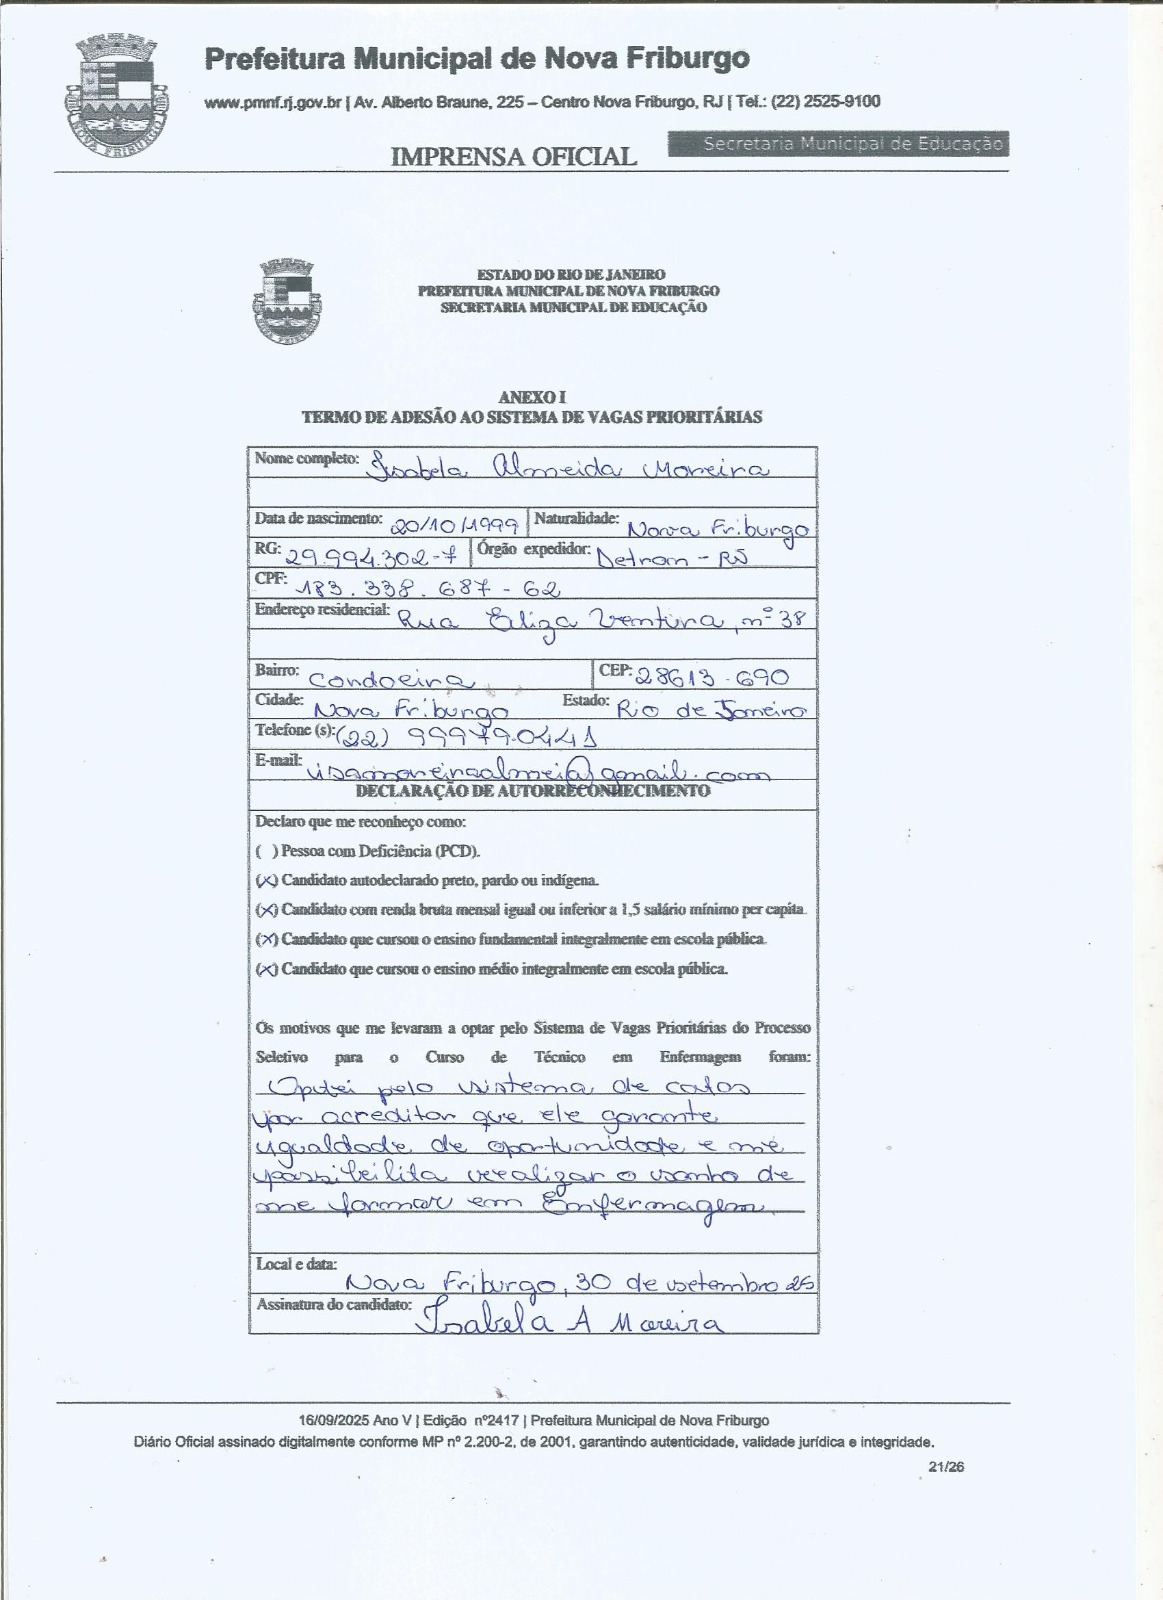 Prefeitura Municipal de Nova Friburgo
www.pmnf.rj.gov.br | Av. Alberto Braune, 225 – Centro Nova Friburgo, RJ | Tel.: (22) 2525-9100
IMPRENSA OFICIAL
Secretaria Municipal de Educação
NOVA FRIBURGO
ESTADO DO RIO DE JANEIRO
PREFEITURA MUNICIPAL DE NOVA FRIBURGO
SECRETARIA MUNICIPAL DE EDUCAÇÃO
ANEXO I
TERMO DE ADESÃO AO SISTEMA DE VAGAS PRIORITÁRIAS
Nome completo: Isabela Almeida Moreira
Data de nascimento: 20/10/1999 Naturalidade: Nova Friburgo
RG: 29.994.302-7 Órgão expedidor: Detran - RJ
CPF: 183.338.687-62
Endereço residencial: Rua Eliza Ventura, nº 38
Bairro: Condoeira CEP: 28613-690
Cidade: Nova Friburgo Estado: Rio de Janeiro
Telefone (s): (22) 999790441
E-mail: isamoreiraalmei@gmail.com
DECLARAÇÃO DE AUTORRECONHECIMENTO
Declaro que me reconheço como:
( ) Pessoa com Deficiência (PCD).
(X) Candidato autodeclarado preto, pardo ou indígena.
(X) Candidato com renda bruta mensal igual ou inferior a 1,5 salário mínimo per capita.
(X) Candidato que cursou o ensino fundamental integralmente em escola pública.
(X) Candidato que cursou o ensino médio integralmente em escola pública.
Os motivos que me levaram a optar pelo Sistema de Vagas Prioritárias do Processo
Seletivo para o Curso de Técnico em Enfermagem foram:
Optei pelo sistema de cotas
por acreditar que ele garante
igualdade de oportunidade e me
possibilita realizar o sonho de
me formar em Enfermagem.
Local e data: Nova Friburgo, 30 de setembro 25
Assinatura do candidato: Isabela A Moreira
16/09/2025 Ano V | Edição nº2417 | Prefeitura Municipal de Nova Friburgo
Diário Oficial assinado digitalmente conforme MP nº 2.200-2, de 2001, garantindo autenticidade, validade jurídica e integridade.
21/26